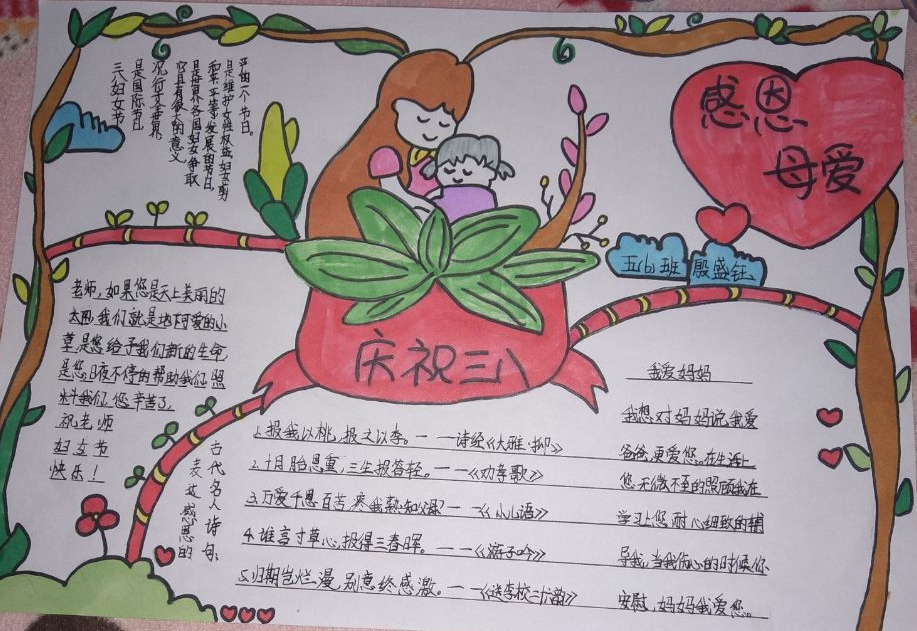 感恩
母爱
五(6)班 殷盛钰
庆祝三八
三八妇女节
是国际节日
它具有很大的意义
是世界各国妇女争取
和平、平等、发展的节日,
是维护女性权益妇女
一个节日。
老师,如果您是天上美丽的
太阳,我们就是地下可爱的小
草,是您给予我们新的生命,
是您日夜不停的帮助我们,照
料我们,您辛苦了,
祝老师
妇女节
快乐!
古代名人诗母
表达感恩的
1.报我以桃,报之以李。——诗经《大雅·抑》
2.十月胎恩重,三生报答轻。——《劝孝歌》
3.万爱千恩百苦,疼我孰知父母?——《小儿语》
4.谁言寸草心,报得三春晖。——《游子吟》
5.归期岂烂漫,别意终感激。——《送李校二十六韵》
我爱妈妈
我想对妈妈说,我爱
爸爸,更爱您。在生活上
您无微不至的照顾我在
学习上您耐心细致的辅
导我,当我伤心的时候你
安慰,妈妈我爱您。